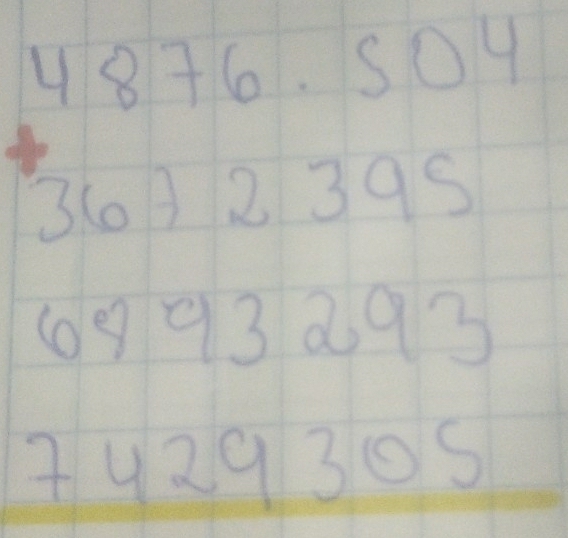 4876.504
+
3672395
6893293
7429305